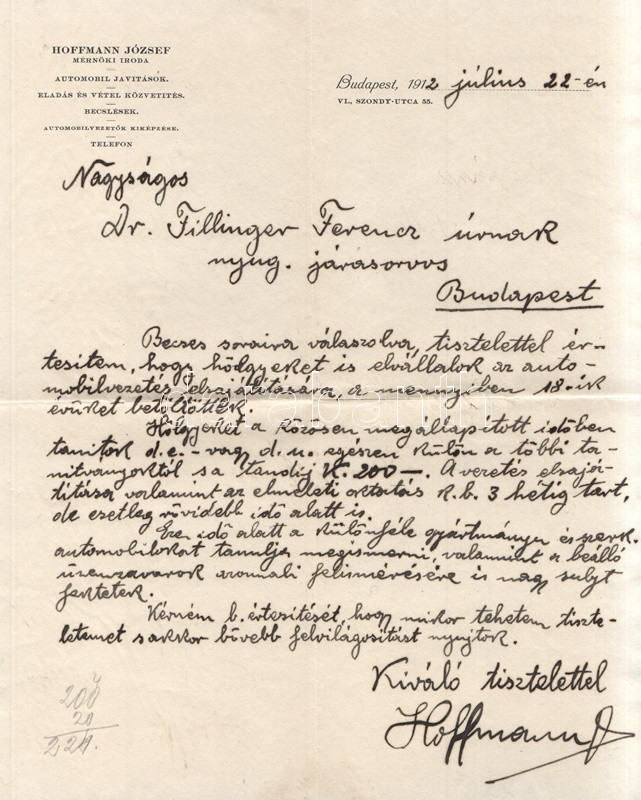 HOFFMANN JÓZSEF
MÉRNÖKI IRODA
AUTOMOBIL JAVITÁSOK.
ELADÁS ÉS VÉTEL KÖZVETITÉS.
BECSLÉSEK.
AUTOMOBILVEZETŐK KIKÉPZÉSE.
TELEFON
Budapest, 1912 július 22-én
VI., SZONDY-UTCA 55.
Nagyságos
Dr. Fillinger Ferencz úrnak
nyug. járásorvos
Budapest
Becses soraira válaszolva, tisztelettel ér-
tesitem, hogy hölgyeket is elvállalok az auto-
mobilvezetés elsajátitására, a mennyiben 18-ik
évüket betöltötték.
Hölgyeket a közösen megállapitott időben
tanitok d.e. - vagy d.u. egészen külön a többi ta-
nitványoktól s a tandij K. 200-. A vezetés elsajá-
titása valamint az elméleti oktatás k.b. 3 hétig tart,
de esetleg rövidebb idő alatt is.
Ezen idő alatt a különféle gyártmányu és szerk.
automobilokat tanulja megismerni, valamint a beálló
üzemzavarok azonnali felismerésére is nagy sulyt
fektetek.
Kérném b. értesitését, hogy mikor tehetem tiszte-
letemet s akkor bővebb felvilágositást nyujtok.
Kiváló tisztelettel
Hoffmann J
200
20
220.